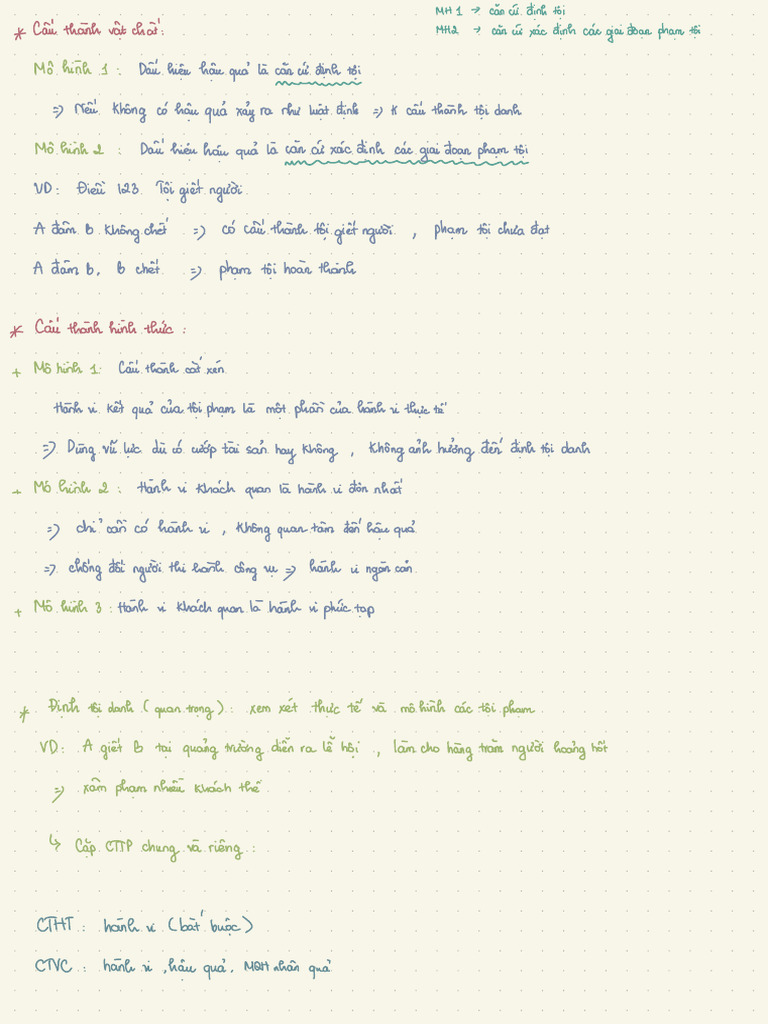 MH 1 → căn cứ định tội
MH2 → căn cứ xác định các giai đoạn phạm tội
* Cấu thành vật chất:
Mô hình 1 : Dấu hiệu hậu quả là căn cứ định tội
=> Nếu không có hậu quả xảy ra như luật định => K cấu thành tội danh
Mô hình 2 : Dấu hiệu hậu quả là căn cứ xác định các giai đoạn phạm tội
VD: Điều 123. Tội giết người
A đâm B không chết => có cấu thành tội giết người , phạm tội chưa đạt
A đâm B, B chết => phạm tội hoàn thành
* Cấu thành hình thức :
+ Mô hình 1: Cấu thành cắt xén
Hành vi kết quả của tội phạm là một phần của hành vi thực tế
=> Dùng vũ lực dù có cướp tài sản hay không , không ảnh hưởng đến định tội danh
+ Mô hình 2 : Hành vi khách quan là hành vi đơn nhất
=> chỉ cần có hành vi , không quan tâm đến hậu quả
=> chống đối người thi hành công vụ => hành vi ngăn cản
+ Mô hình 3 : Hành vi khách quan là hành vi phức tạp
* Định tội danh ( quan trọng ) : xem xét thực tế và mô hình các tội phạm
VD: A giết B tại quảng trường diễn ra lễ hội , làm cho hàng trăm người hoảng hốt
=> xâm phạm nhiều khách thể
↳ Cặp CTTP chung và riêng :
CTHT : hành vi (bắt buộc)
CTVC : hành vi , hậu quả , MQH nhân quả